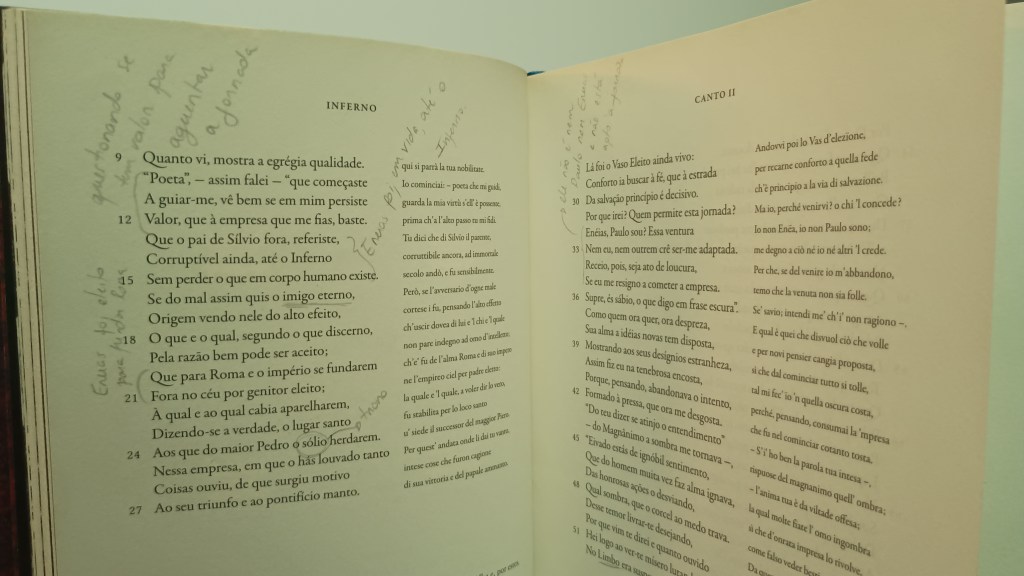 INFERNO
9 Quanto vi, mostra a egrégia qualidade.
"Poeta", – assim falei – "que começaste
A guiar-me, vê bem se em mim persiste
12 Valor, que à empresa que me fias, baste.
Que o pai de Sílvio fora, referiste,
Corruptível ainda, até o Inferno
15 Sem perder o que em corpo humano existe.
Se do mal assim quis o imigo eterno,
Origem vendo nele do alto efeito,
18 O que e o qual, segundo o que discerno,
Pela razão bem pode ser aceito;
Que para Roma e o império se fundarem
21 Fora no céu por genitor eleito;
À qual e ao qual cabia aparelharem,
Dizendo-se a verdade, o lugar santo
24 Aos que do maior Pedro o sólio herdarem.
Nessa empresa, em que o hás louvado tanto
Coisas ouviu, de que surgiu motivo
27 Ao seu triunfo e ao pontifício manto.
qui si parrà la tua nobilitate.
Io cominciai: – poeta che mi guidi,
guarda la mia virtù s'ell' è possente,
prima ch'a l'alto passo tu mi fidi.
Tu dici che di Silvio il parente,
corruttibile ancora, ad immortale
secolo andò, e fu sensibilmente.
Però, se l'avversario d'ogne male
cortese i fu, pensando l'alto effetto
ch'uscir dovea di lui e 'l chi e 'l quale
non pare indegno ad omo d'intelletto;
ch'e' fu de l'alma Roma e di suo impero
ne l'empireo ciel per padre eletto:
la quale e 'l quale, a voler dir lo vero,
fu stabilita per lo loco santo
u' siede il successor del maggior Piero.
Per quest' andata onde li dai tu vanto,
intese cose che furon cagione
di sua vittoria e del papale ammanto.
questionando se
tem valor para
aguentar
a jornada
Eneas foi em vida, até o
Inferno
Eneas foi eleito
trono
CANTO II
Lá foi o Vaso Eleito ainda vivo:
Conforto ia buscar à fé, que à estrada
30 Da salvação princípio é decisivo.
Por que irei? Quem permite esta jornada?
Enéias, Paulo sou? Essa ventura
33 Nem eu, nem outrem crê ser-me adaptada.
Receio, pois, seja ato de loucura,
Se eu me resigno a cometer a empresa.
36 Supre, és sábio, o que digo em frase escura".
Como quem ora quer, ora despreza,
Sua alma a idéias novas tem disposta,
39 Mostrando aos seus desígnios estranheza,
Assim fiz eu na tenebrosa encosta,
Porque, pensando, abandonava o intento,
42 Formado à pressa, que ora me desgosta.
"Do teu dizer se atinjo o entendimento"
– do Magnânimo a sombra me tornava –,
45 "Eivado estás de ignóbil sentimento,
Que do homem muita vez faz alma ignava,
Das honrosas ações o desviando,
48 Qual sombra, que o corcel ao medo trava.
Desse temor livrar-te desejando,
Por que vim te direi e quanto ouvido
51 Hei logo ao ver-te mísero
No Limbo era
Andovvi poi lo Vas d'elezione,
per recarne conforto a quella fede
ch'è principio a la via di salvazione.
Ma io, perché venirvi? o chi 'l concede?
Io non Enëa, io non Paulo sono;
me degno a ciò né io né altri 'l crede.
Per che, se del venire io m'abbandono,
temo che la venuta non sia folle.
Se' savio; intendi me' ch'i' non ragiono –.
E qual è quei che disvuol ciò che volle
e per novi pensier cangia proposta,
sì che dal cominciar tutto si tolle,
tal mi fec' ïo 'n quella oscura costa,
perché, pensando, consumai la 'mpresa
che fu nel cominciar cotanto tosta.
– S'i' ho ben la parola tua intesa –,
rispuose del magnanimo quell' ombra;
– l'anima tua è da viltade offesa;
la qual molte fiate l' omo ingombra
sì che d'onrata impresa lo rivolve,
come falso veder